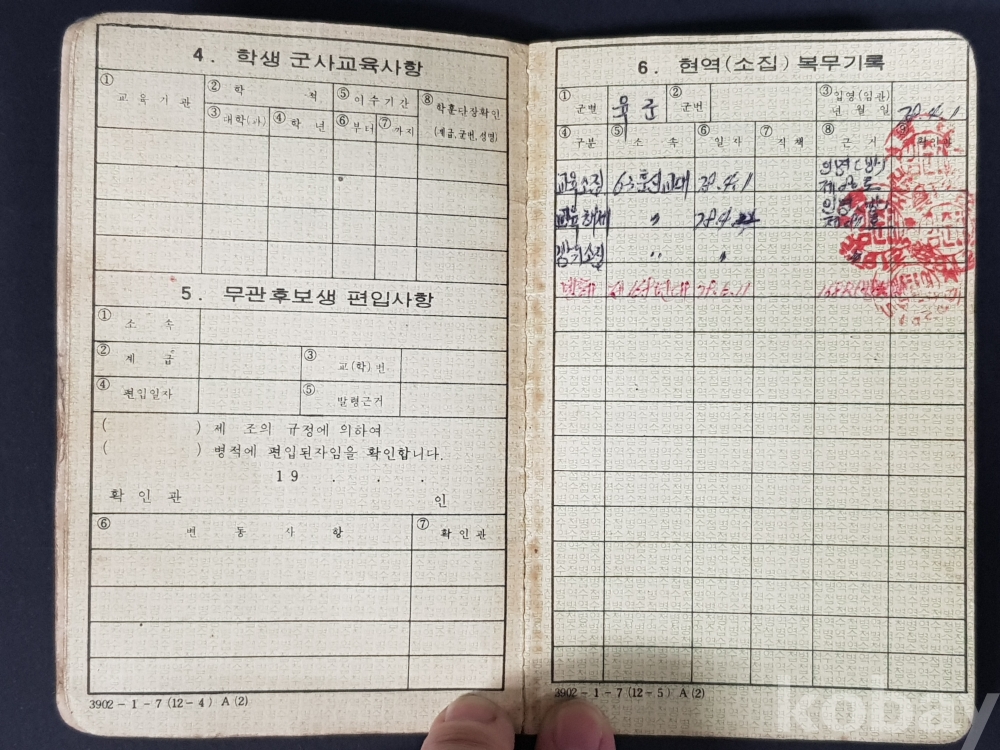 4. 학생 군사교육사항
① 교육기관
② 학 적
⑤ 이수기간
⑧ 학훈단장확인
(계급, 군번, 성명)
③ 대학(과)
④ 학 년
⑥ 부터
⑦ 까지
5. 무관후보생 편입사항
① 소 속
② 계 급
③ 교(학)번
④ 편입일자
⑤ 발령근거
( ) 제 조의 규정에 의하여
( ) 병적에 편입된자임을 확인합니다.
19 . . .
확 인 관 인
⑥ 변 동 사 항
⑦ 확 인 관
3902-1-7(12-4) A(2)
6. 현역(소집) 복무기록
① 군별 육군
② 군번
③ 입영(임관) 년 월 일
④ 구분
⑤ 소 속
⑥ 일 자
⑦ 직 책
⑧ 근 거
교육소집
교육해제 〃
방위소집 〃 〃
3902-1-7(12-5) A(2)
kobay